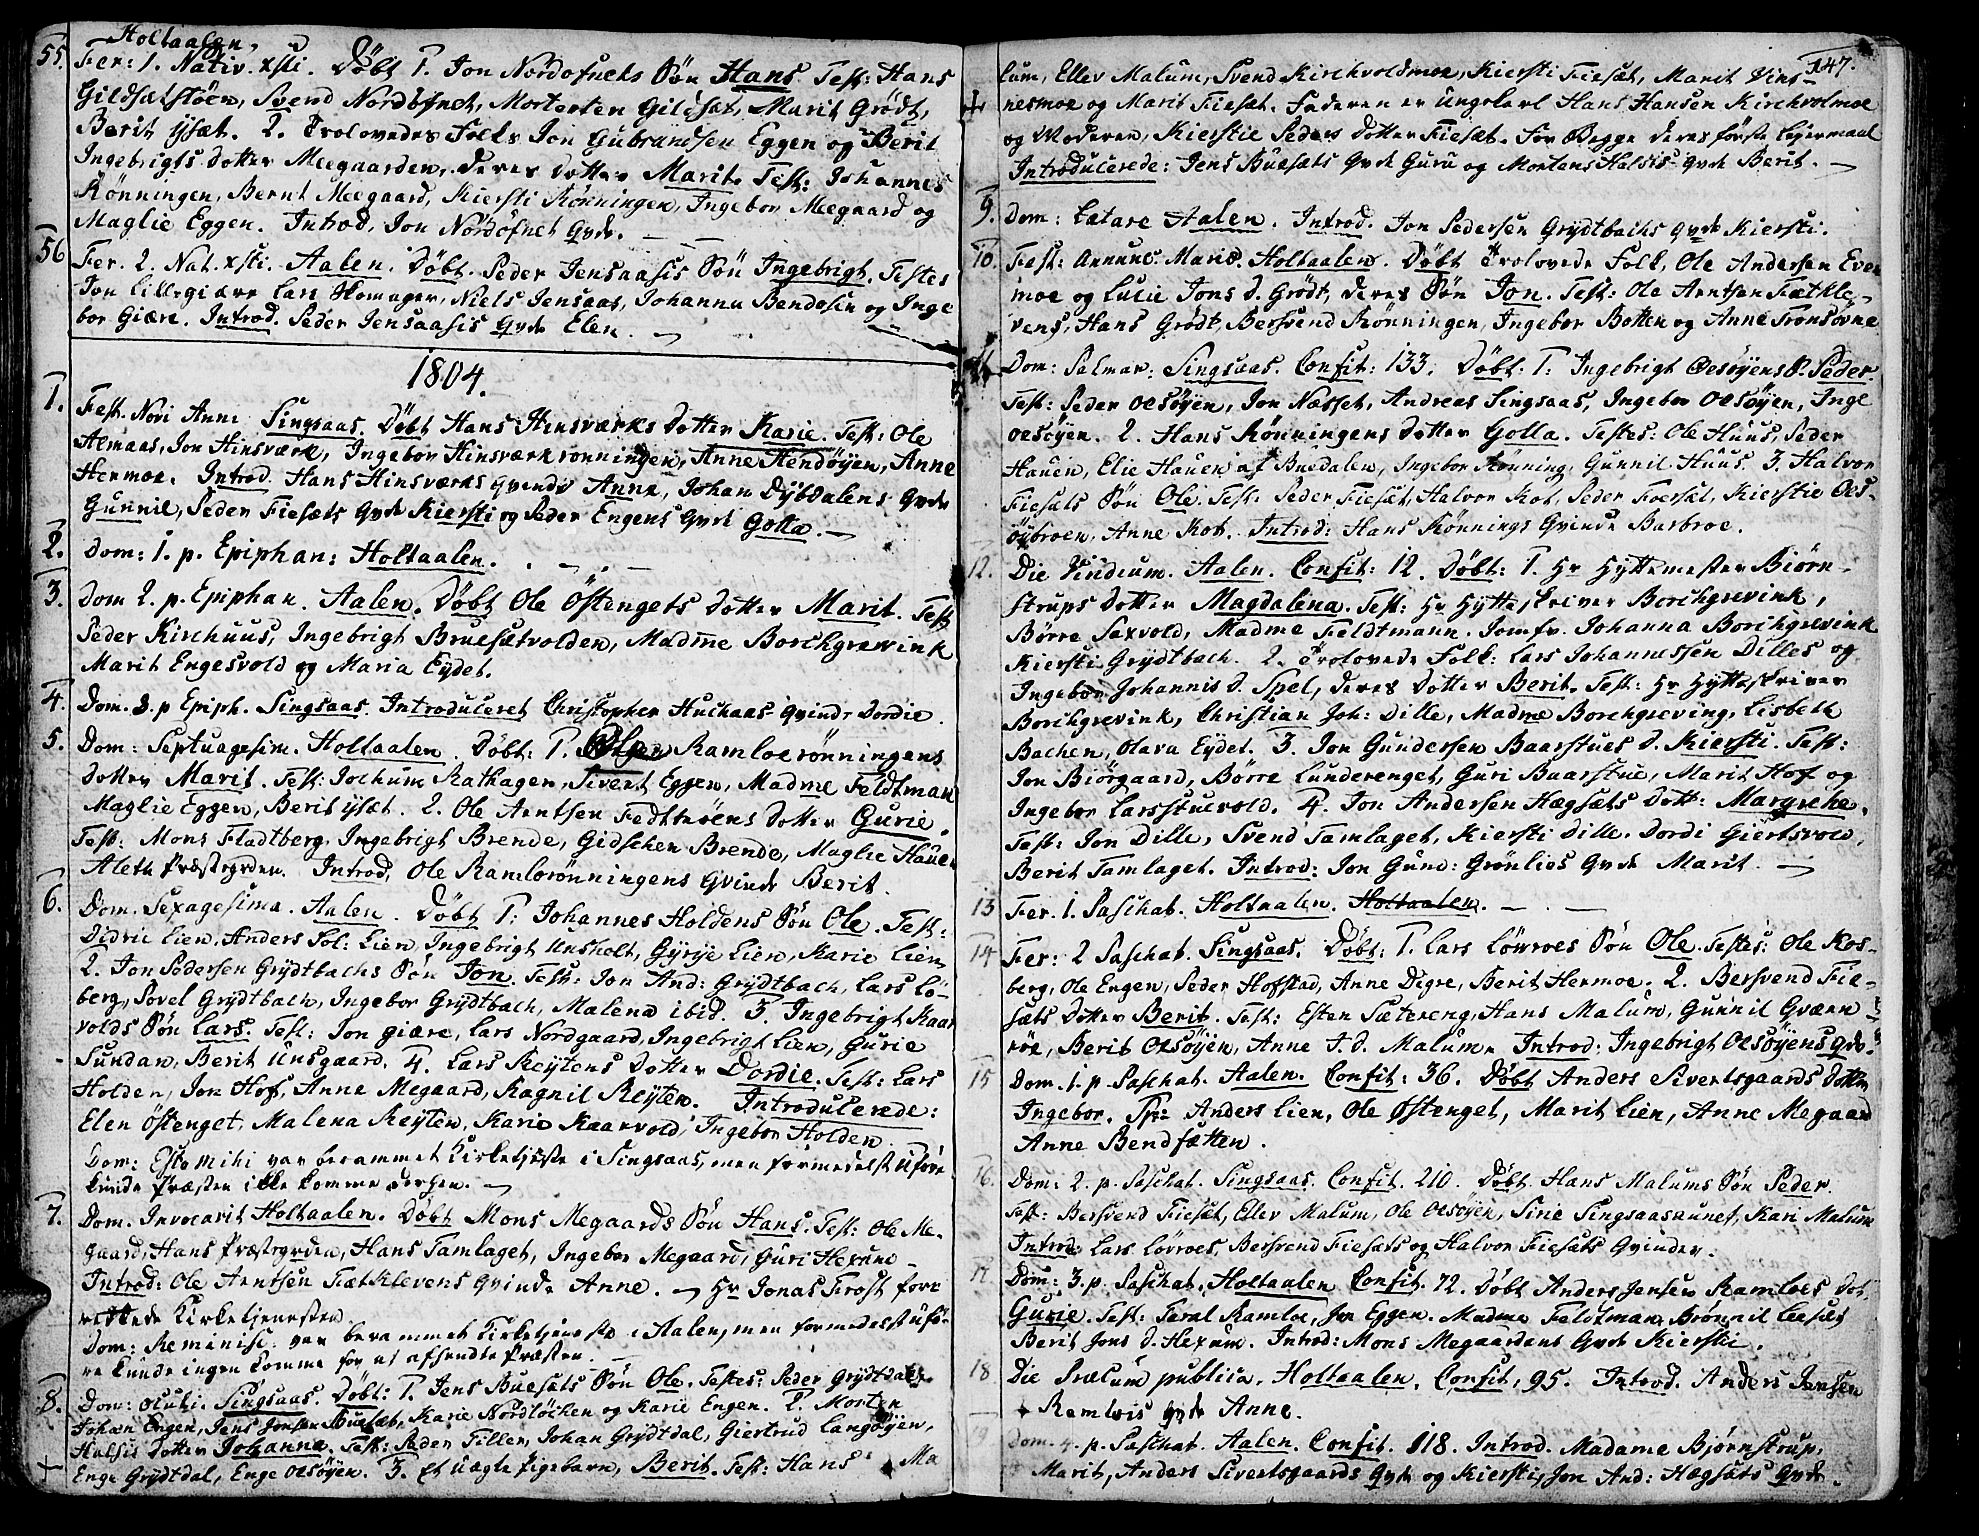 Holtaalen,
55. Fer: 1. Nativ. xsti. Döbt 1. Jon Nordöfnets Sön Hans. Test: Hans
Gildsætstöen, Svend Nordöfnet, Morten Gildsæt, Marit Grödt,
Berit Ysæt. 2. Trolovedes Folks Jon Gubrandsen Eggen og Berit
Ingebrigts dotter Meegaarden, deres dotter Marit. Test: Johannes
Rönningen, Bernt Meegaard, Kiersti Rönningen, Ingebor Meegaard og
Maglie Eggen. Introd. Jon Nordöfnet Qvde.
56 Fer. 2. Nat. xsti. Aalen. Döbt. Peder Jensaasis Sön Ingebrigt. Testes
Jon Lillegiære Lars Skomager, Niels Jensaas, Johanna Bendosen og Inge
bor Giære. Introd. Peder Jensaasis Qvde Elen.
1804.
1. Fest. Novi Anni Singsaas. Döbt Hans Hinsværks dotter Karie. Test: Ole
Almaas, Jon Hinsværk, Ingebor Hinsværkrönningen, Anne Hendöyen, Anne
Hermoe. Introd. Hans Hinsværks Qvinde Anne, Johan Dybdalens Qvde
Gunnil, Peder Fiesæts Qvde Kiersti og Peder Engens Qvde Golla.
2. Dom: 1. p. Epiphan: Holtaalen.
3. Dom 2. p. Epiphan. Aalen. Döbt Ole Östengets dotter Marit. Test
Peder Kirchuus, Ingebrigt Bruesætvolden, Madme Borchgrevink
Marit Engesvold og Maria Eydet.
4. Dom. 3. p Epiph. Singsaas. Introduceret Christopher Huckaas Qvinde Dordie.
5. Dom: Septuagesim. Holtaalen. Döbt: 1. Ramloerönningens
dotter Marit. Test: Jochum Rathagen, Sivert Eggen, Madme Feldtman
Maglie Eggen, Berit Ysæt. 2. Ole Arntsen Fedttröens dotter Gurie.
Test: Mons Fladtberg, Ingebrigt Brende, Gidschen Brende, Maglie Hauen
Aleth Præstegrden. Introd. Ole Ramlorönningens Qvinde Berit.
6. Dom. Sexagesima. Aalen. Döbt 1: Johannes Holdens Sön Ole. Test:
Didric Lien, Anders Pol: Lien, Ingebrigt Unsholt, Gyrije Lien, Karie Lien
2. Jon Pedersen Grydtbachs Sön Jon. Test: Jon And: Grydtbach, Lars Lö-
berg, Povel Grydtbach, Ingebor Grydtbach, Malena ibid. 3. Ingebrigt Kaar
volds Sön Lars. Test: Jon Giære, Lars Nordgaard, Ingebrigt Lien, Gurie
Sundan, Berit Unsgaard. 4. Lars Reytens dotter Dordie. Test: Lars
Holden, Jon Hof, Anne Megaard, Ragnil Reyten. Introducerede:
Elen Östenget, Malena Reyten, Karie Kaarvold, Ingebor Holden.
Dom: Esto mihi var berammet Kirketjeste i Singsaas, men formedelst Uföre
kunde Præsten ikke komme derhen.
7. Dom. Invocavit Holtaalen. Döbt Mons Megaards Sön Hans. Test: Ole Me-
gaard, Hans Præstegrden, Hans Tamlaget, Ingebor Megaard, Guri Hexum
Introd: Ole Arntsen Fætklevens Qvinde Anne. Hr Jonas Frost forr
rettede Kirketjenesten
Dom: Reminisc. var berammet Kirketjeneste i Aalen, men formedelst Ufö-
re kunde ingen komme for at afhendte Præsten.
8. Dom: Oculi. Singsaas. Döbt: 1. Jens Buesæts Sön Ole. Testes: Peder Grydtdal,
Johan Engen, Jens Jonsen Buesæt, Karie Nordlöchen og Karie Engen. 2. Morten
Halsis dotter Johanna. Test: Peder Tiller, Johan Grydtdal, Giertrud Langöyen,
+ Enge Grydtdal, Enge Oesöyen. 3. Et Uægte Pigebarn, Berit. Test: Hans Ma
147.
lum, Ellev Malum, Svend Kirchvoldmoe, Kiersti Fiesæt, Marit Vins-
+ nesmoe og Marit Fiesæt. Faderen er Ungekarl Hans Hansen Kirchvolmoe
og Moderen, Kierstie Peders dotter Fiesæt. For Begge deres förste Lejermaal
Introducerede: Jens Buesæts Qvde Guru og Mortens Halsis Qvde Berit.
9. Dom: Lætare Aalen. Introd. Jon Pedersen Grydtbachs Qvde Kiersti.
10. Fest: Annunc. Mariæ. Holtaalen. Döbt Trolovede Folk, Ole Andersen Even
moe og Lucie Jons d. Grödt, deres Sön Jon. Test: Ole Arntsen Fætkle-
vens, Hans Grödt, Bersvend Rönningen, Ingebor Botten og Anne Tronsövne
11. Dom: Palmar: Singsaas. Confit: 133. Döbt: 1. Ingebrigt Oesöyens S. Peder.
Test: Peder Oesöyen, Jon Næsset, Andreas Singsaas, Ingebor Oesöyen, Inge
Oesöyen. 2. Hans Rönningens dotter Golla. Testes: Ole Huus, Peder
Hauen, Elie Hauen af Budalen, Ingebor Rönning, Gunnil Huus. 3. Halvor
Fiesæts Sön Ole. Test: Peder Fiesæt, Halvor Kot, Peder Foesæt, Kierstie Oes-
öybroen, Anne Kot. Introd: Hans Rönnings Qvinde Barbroe.
12. Die Viridium. Aalen. Confit: 12. Döbt: 1. Hr Hyttemester Biörn-
strups dotter Magdalena. Test: Hr Hytteskriver Borchgrevink,
Börre Saxvold, Madme Feldtmann. Jomfr. Johanna Borchgrevink
Kiersti Grydtbach. 2. Trolovede Folk: Lars Johannessen Dilles og
Ingebor Johannis d. Spel, deres dotter Berit. Test: Hr Hytteskriver
Borchgrevink, Christian Joh: Dille, Madme Borchgreving, Lisbeth
Bachen, Olava Eydet. 3. Jon Gundersen Baarstues d. Kiersti. Test:
Jon Biörgaard, Börre Lunderenget, Guri Baarstue, Marit Hof og
Ingebor Larsstuevold. 4. Jon Andersen Hægsæts dott: Margrethe.
Test: Jon Dille, Svend Tamlaget, Kiersti Dille. Dordi Giertsvold,
Berit Tamlaget. Introd: Jon Gund: Grönlies Qvde Marit.
13 Fer. 1. Paschat. Holtaalen. Holtaalen.
14 Fer: 2 Paschat. Singsaas. Döbt: 1. Lars Lövroes Sön Ole. Testes: Ole Ros-
berg, Ole Engen, Peder Hofstad, Anne Digre, Berit Hermoe. 2. Bersvend Fie-
sæts dotter Berit. Test: Esten Sætereng, Hans Malum, Gunnil Qværn-
röe, Berit Oesöyen, Anne T. d. Malum. Introd: Ingebrigt Oesöyens Qvde.
15 Dom. 1. p. Paschat. Aalen. Confit: 36. Döbt Anders Sivertsgaards dotter
Ingebor. Sp: Anders Lien, Ole Östenget, Marit Lien, Anne Megaard
Anne Bendsætten.
16. Dom: 2. p. Paschat. Singsaas. Confit. 210. Döbt. Hans Malums Sön Peder.
Test: Bersvend Fiesæt, Ellev Malum, Ole Oesöyen, Sirie Singsaasaunet, Kari Malum
Introd: Lars Lövroes, Bersvend Fiesæts og Halvor Fiesæts Qvinder.
17. Dom: 3. p. Paschat. Holtaalen Confit. 72. Döbt Anders Jensen Ramloes dot.
Gurie. Test: Taral Ramloe, Jon Eggen. Madme Feldtman, Brönnil Eesæt
Berit Jons d. Hexum. Introd: Mons Megaardens Qvde Kiersti.
18 Die Precum publica. Holtaalen. Confit. 95. Introd. Anders Jensen
Ramloes Qvde Anne.
19 Dom. 4. p. Paschat. Aalen. Confit. 118. Introd. Madame Bjørnstrup,
Marit, Anders Sivertsgaards Qvde og Kiersti, Jon And: Hægsæts Qvde.